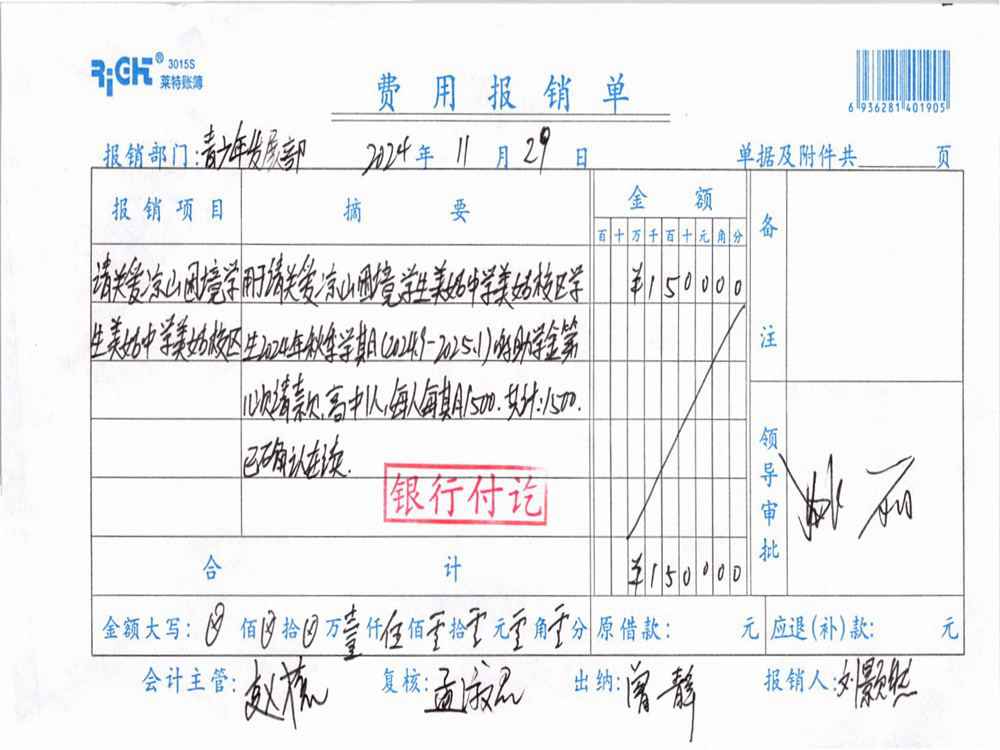 RiGHT® 3015S
莱特账簿
费用报销单
6 936281 401905
报销部门:青少年发展部 2024年11月29日 单据及附件共____页
报销项目 摘要 金额 备注
百十万千百十元角分
请关爱凉山困境学 用于请关爱凉山困境学生美姑中学美姑校区学 ¥150000
生美姑中学美姑校区 生2024年秋季学期(2024.9-2025.1)的助学金第
请款,高中1人,每人每期1500.共计:1500.
已确认在读.
银行付讫
领导审批
合计 ¥150000
金额大写: 佰 拾 万壹仟伍佰零拾零元零角零分 原借款: 元 应退(补)款: 元
会计主管:赵 复核:孟淑 出纳:曾静 报销人:刘颢